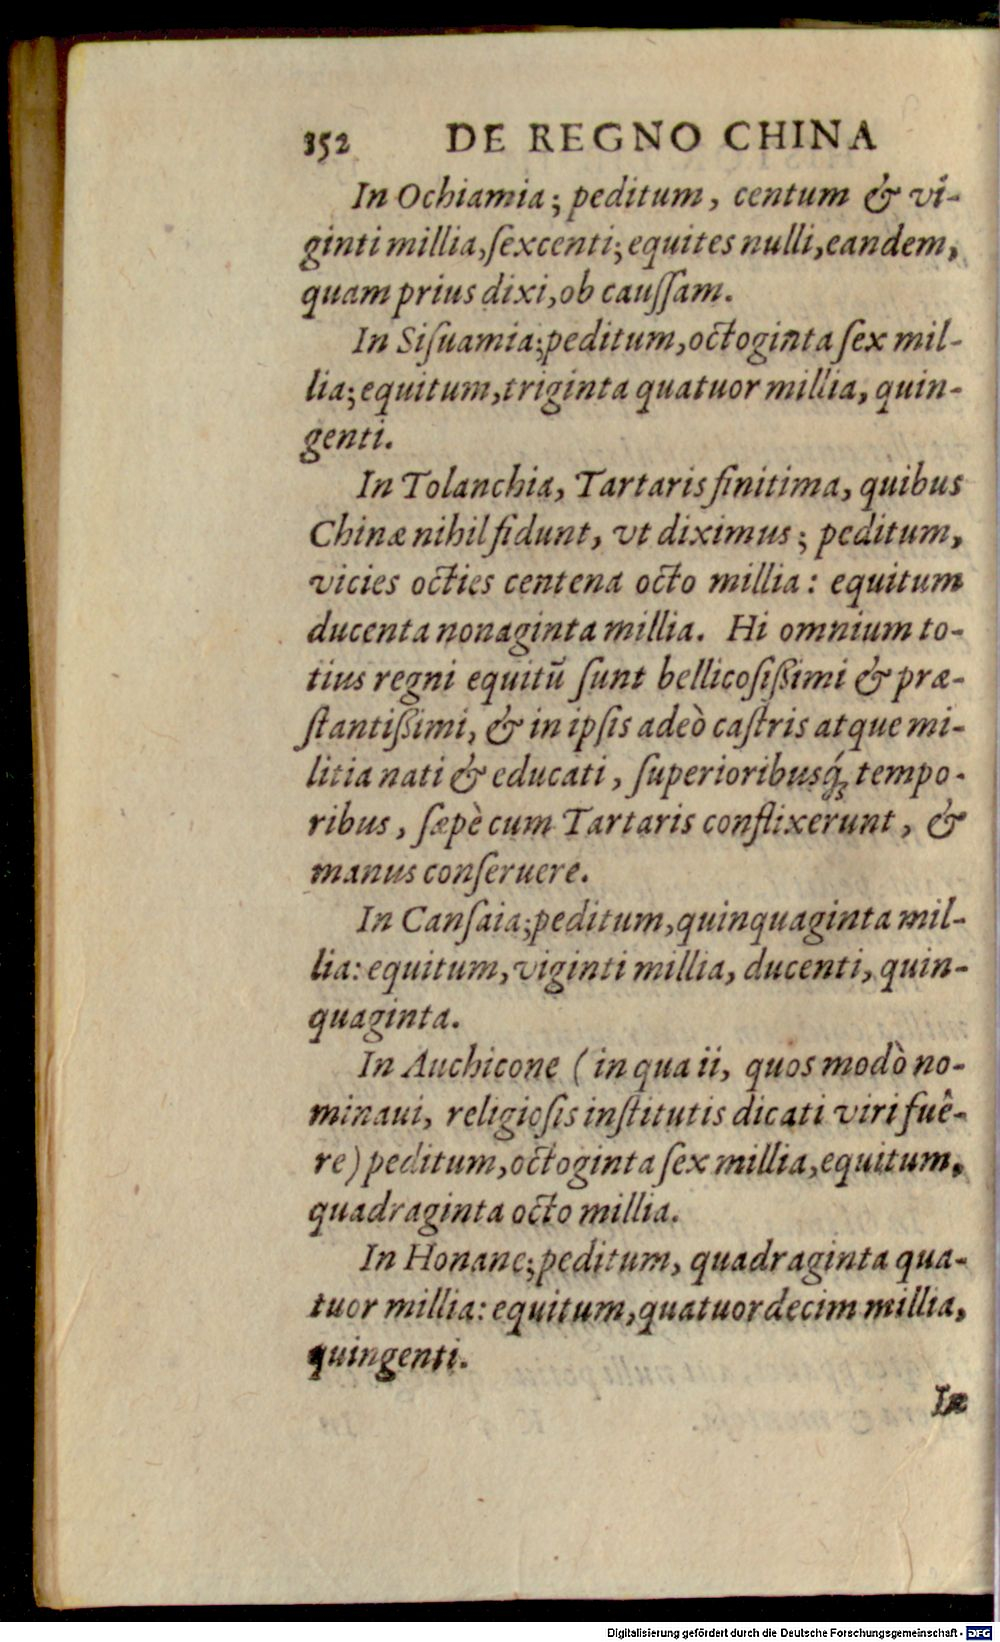 352 DE REGNO CHINA
In Ochiamia; peditum, centum & vi-
ginti millia, ſexcenti; equites nulli, eandem,
quam prius dixi, ob cauſſam.
In Siſuamia; peditum, octoginta ſex mil-
lia; equitum, triginta quatuor millia, quin-
genti.
In Tolanchia, Tartaris finitima, quibus
Chinæ nihil fidunt, vt diximus; peditum,
vicies octies centena octo millia: equitum
ducenta nonaginta millia. Hi omnium to-
tius regni equitū ſunt bellicoſiſſimi & præ-
ſtantiſſimi, & in ipſis adeò caſtris atque mi-
litia nati & educati, ſuperioribusq́; tempo-
ribus, ſæpè cum Tartaris conflixerunt, &
manus conſeruere.
In Canſaia; peditum, quinquaginta mil-
lia: equitum, viginti millia, ducenti, quin-
quaginta.
In Auchicone (in qua ii, quos modò no-
minaui, religioſis inſtitutis dicati viri fuê-
re) peditum, octoginta ſex millia, equitum,
quadraginta octo millia.
In Honane; peditum, quadraginta qua-
tuor millia: equitum, quatuordecim millia,
quingenti.
In
Digitalisierung gefördert durch die Deutsche Forschungsgemeinschaft - DFG